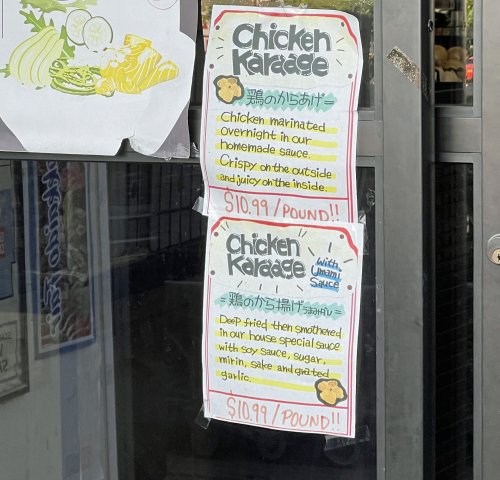 Chicken
Karaage
鶏のからあげ
Chicken marinated
overnight in our
homemade sauce.
Crispy on the outside
and juicy on the inside.
$10.99/POUND!!
Chicken
Karaage
with
Umami
Sauce
=鶏のから揚げ うまみダレ=
Deep fried then smothered
in our house special sauce
with soy sauce, sugar,
mirin, sake and grated
garlic.
$10.99/POUND!!